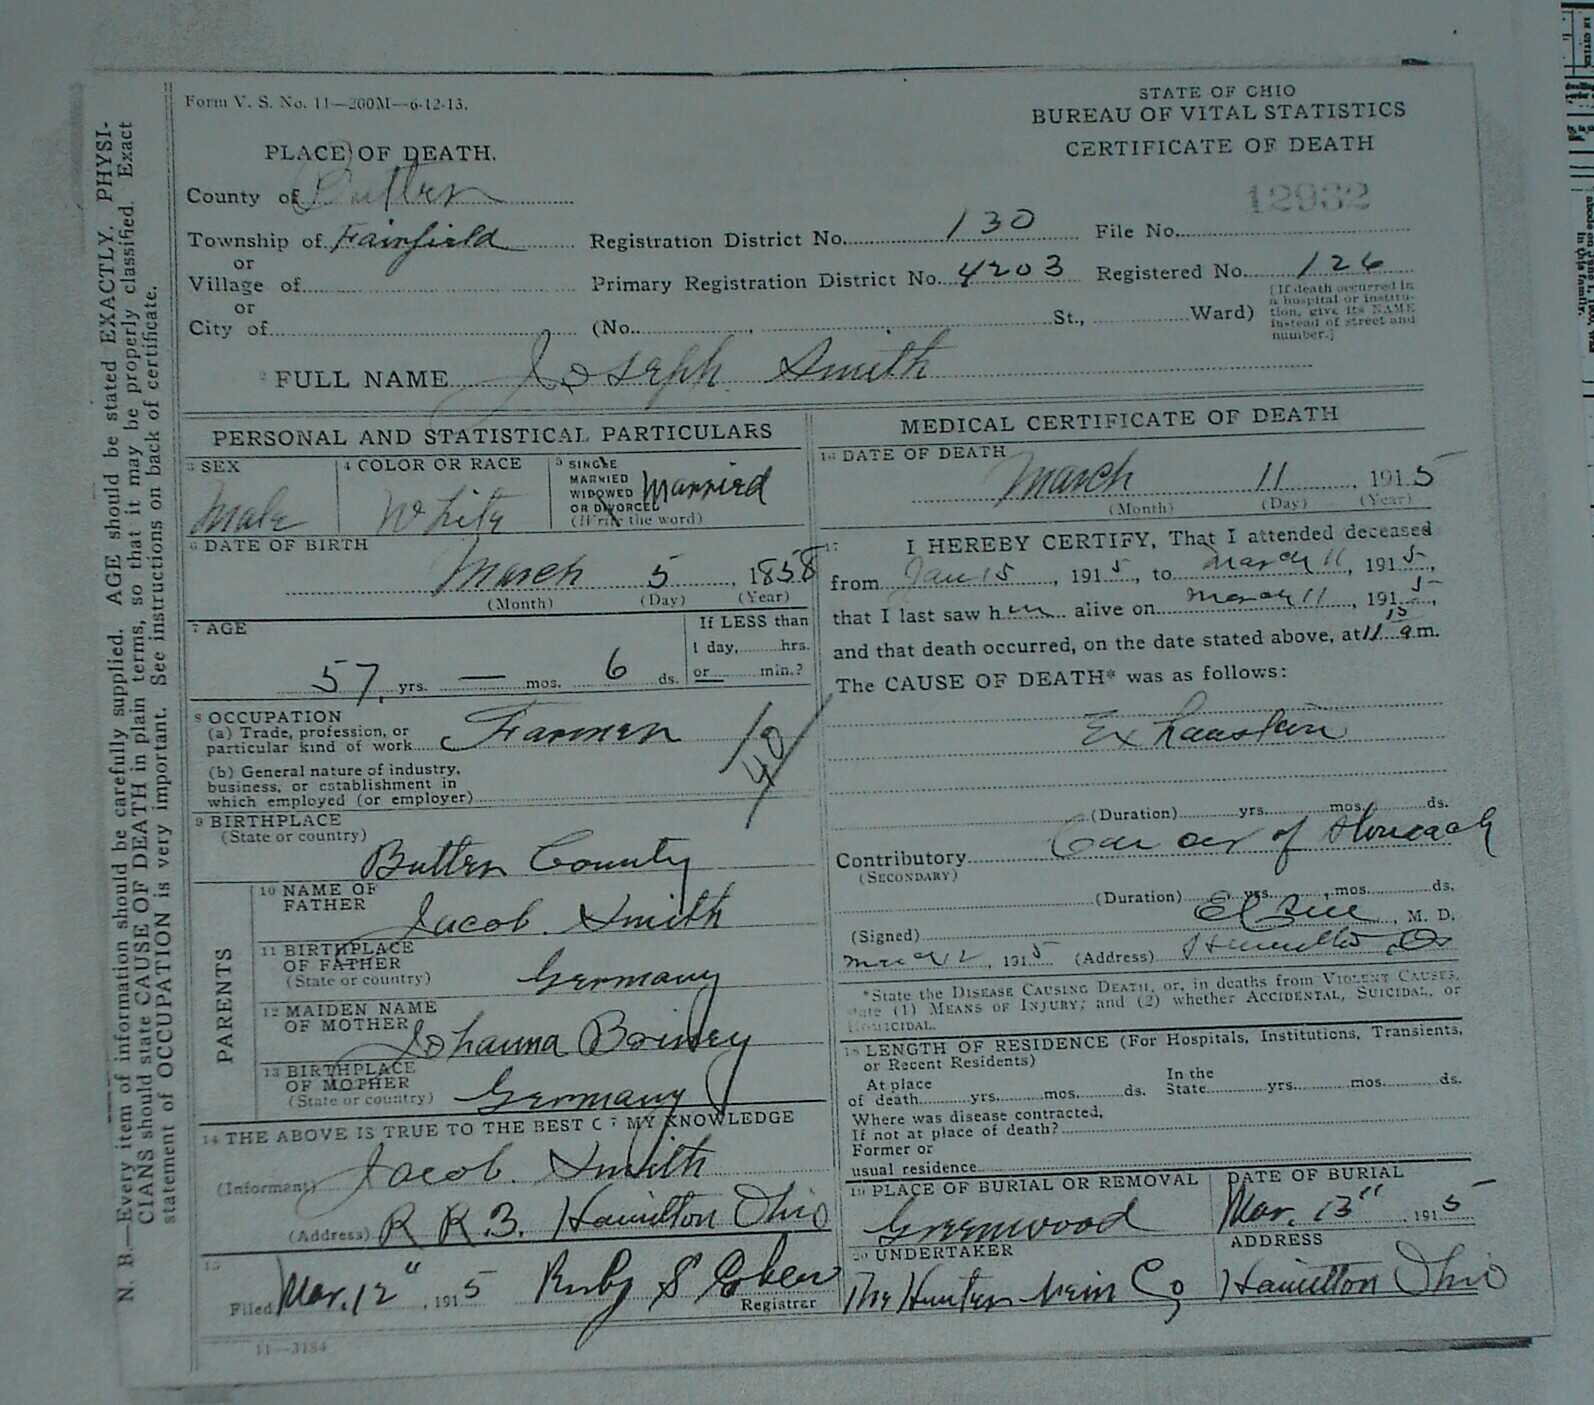 Form V. S. No. 11—200M—6-12-13.
STATE OF OHIO
BUREAU OF VITAL STATISTICS
CERTIFICATE OF DEATH
PLACE OF DEATH.
12932
County of Butler
Township of Fairfield Registration District No. 130 File No.
or
Village of Primary Registration District No. 4203 Registered No. 126
or
City of (No. , St., Ward)
[If death occurred in
a hospital or institu-
tion, give its NAME
instead of street and
number.]
2 FULL NAME Joseph Smith
PERSONAL AND STATISTICAL PARTICULARS
3 SEX
Male
4 COLOR OR RACE
White
5 SINGLE
MARRIED
WIDOWED
OR DIVORCED
(Write the word)
Married
6 DATE OF BIRTH
March 5, 1858
(Month) (Day) (Year)
7 AGE
57 yrs. — mos. 6 ds.
If LESS than
1 day, hrs.
or min.?
8 OCCUPATION
(a) Trade, profession, or
particular kind of work Farmer
(b) General nature of industry,
business, or establishment in
which employed (or employer)
9 BIRTHPLACE
(State or country)
Butler County
PARENTS
10 NAME OF
FATHER
Jacob Smith
11 BIRTHPLACE
OF FATHER
(State or country)
Germany
12 MAIDEN NAME
OF MOTHER
Johanna
13 BIRTHPLACE
OF MOTHER
(State or country)
Germany
14 THE ABOVE IS TRUE TO THE BEST OF MY KNOWLEDGE
(Informant) Jacob Smith
(Address) R R 3. Hamilton Ohio
15
Filed Mar. 12", 1915 Ruby S
Registrar
11—3184
MEDICAL CERTIFICATE OF DEATH
16 DATE OF DEATH
March 11, 1915
(Month) (Day) (Year)
17 I HEREBY CERTIFY, That I attended deceased
from Jan 15, 1915, to March 11, 1915,
that I last saw him alive on March 11, 1915,
and that death occurred, on the date stated above, at 11 15 a.m.
The CAUSE OF DEATH* was as follows:
Exhaustion
(Duration) yrs. mos. ds.
Contributory Cancer of stomach
(SECONDARY)
(Duration) yrs. mos. ds.
(Signed) , M. D.
March 12, 1915 (Address) Hamilton, O
*State the DISEASE CAUSING DEATH, or, in deaths from VIOLENT CAUSES,
state (1) MEANS OF INJURY; and (2) whether ACCIDENTAL, SUICIDAL, or
HOMICIDAL.
18 LENGTH OF RESIDENCE (For Hospitals, Institutions, Transients,
or Recent Residents)
At place
of death yrs. mos. ds.
In the
State yrs. mos. ds.
Where was disease contracted,
If not at place of death?
Former or
usual residence
19 PLACE OF BURIAL OR REMOVAL
Greenwood
DATE OF BURIAL
Mar. 13", 1915
20 UNDERTAKER
The Hunter Co
ADDRESS
Hamilton Ohio
N. B.—Every item of information should be carefully supplied. AGE should be stated EXACTLY. PHYSI-
CIANS should state CAUSE OF DEATH in plain terms, so that it may be properly classified. Exact
statement of OCCUPATION is very important. See instructions on back of certificate.